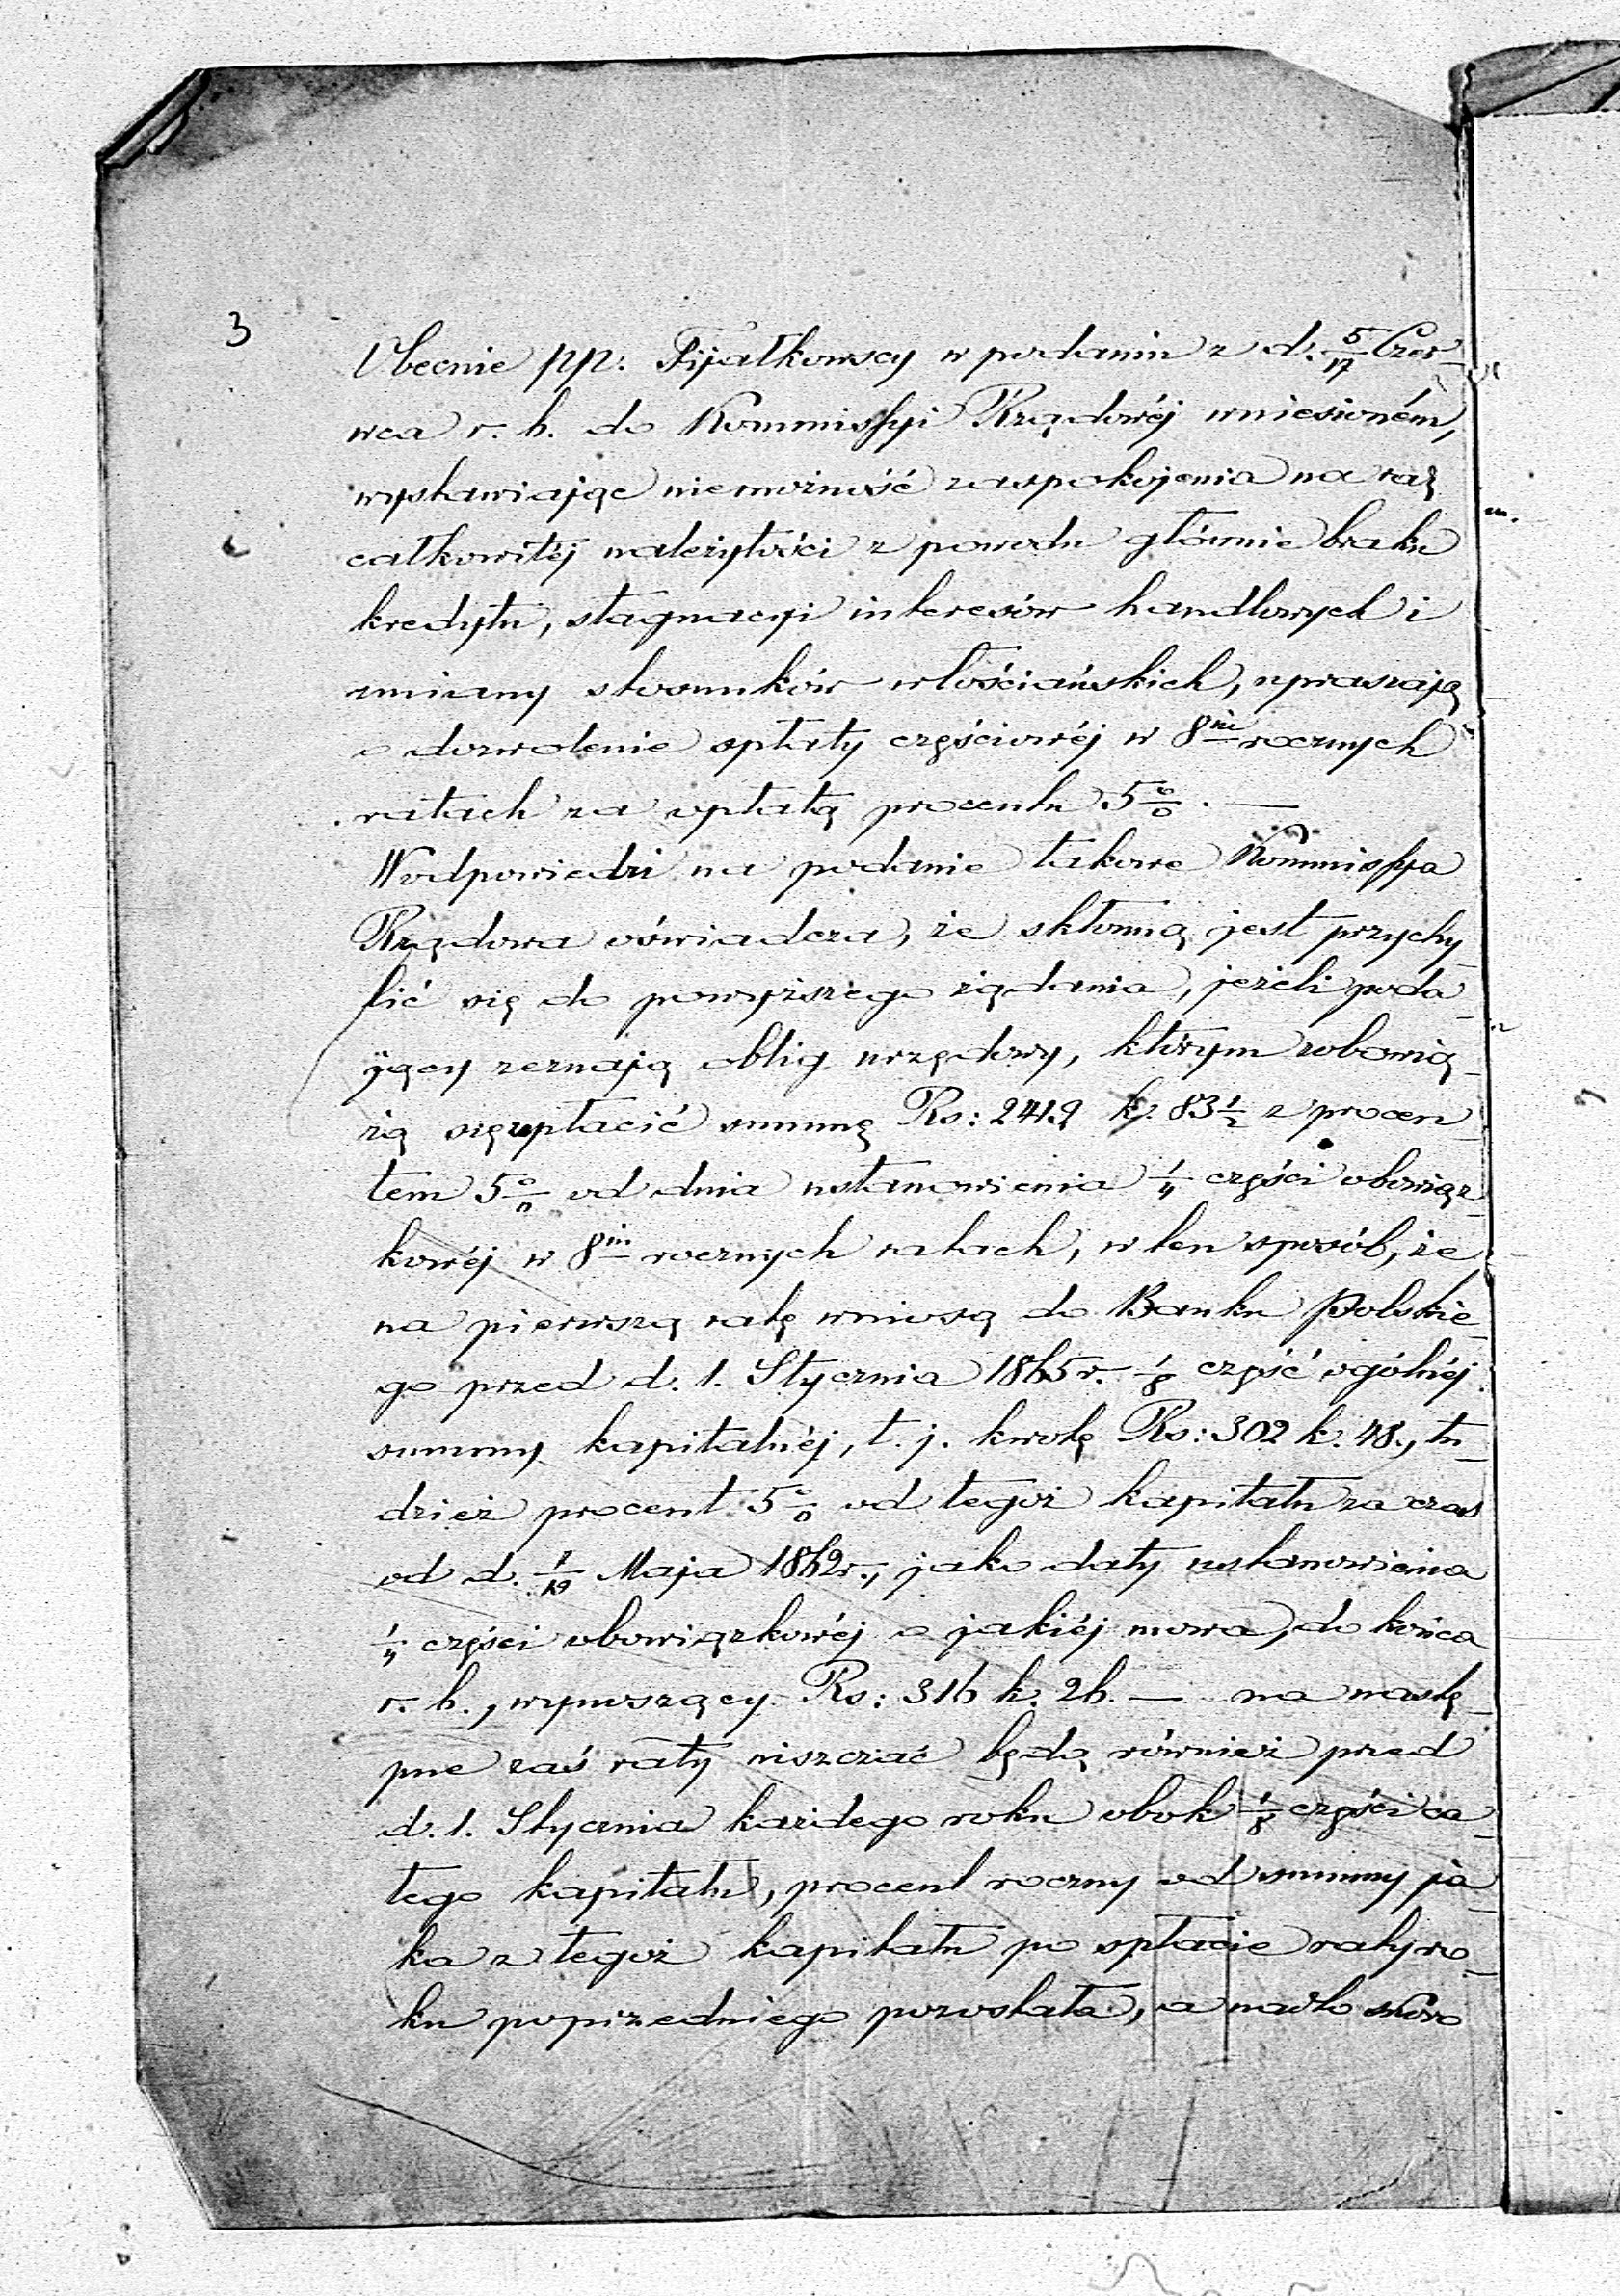 3
Obecnie pp: Fijałkowscy w podaniu z d. 5/17 Czer-
wca r. b. do Kommissyi Rządowéj wniesioném,
wystawiając niemożność zaspokojenia na raz
całkowitéj należytości z powodu głównie braku
kredytu, stagnacyi interesów handlowych i
zmiany stosunków włościańskich, upraszają
o dozwolenie spłaty częściowéj w 8miu rocznych
ratach za opłatą procentu 5%. —
W odpowiedzi na podanie takowe Kommissya
Rządowa oświadcza, że skłonną jest przychy-
lić się do powyższego żądania, jeżeli poda-
jący zeznają oblig urzędowy, którym zobowią-
żą się spłacić summę Rs: 2419 k. 83½ z procen-
tem 5% od dnia ustanowienia ¼ części obowiąz-
kowéj w 8miu rocznych ratach, w ten sposób, że
na pierwszą ratę wniosą do Banku Polskie-
go przed d. 1. Stycznia 1865 r. ⅛ część ogólnéj
summy kapitalnéj, t. j. kwotę Rs: 302 k. 48., tu-
dzież procent 5% od tegoż kapitału za czas
od d. 7/19 Maja 1862 r., jako daty ustanowienia
¼ części obowiązkowéj o jakiéj mowa, do końca
r. b., wynoszący Rs: 316 k. 26. — na nastę-
pne zaś raty uiszczać będą również przed
d. 1. Stycznia każdego roku obok ⅛ części ca-
łego kapitału, procent roczny od summy ja-
ka z tegoż kapitału po spłacie raty ro-
ku poprzedniego pozostała, a nadto skoro